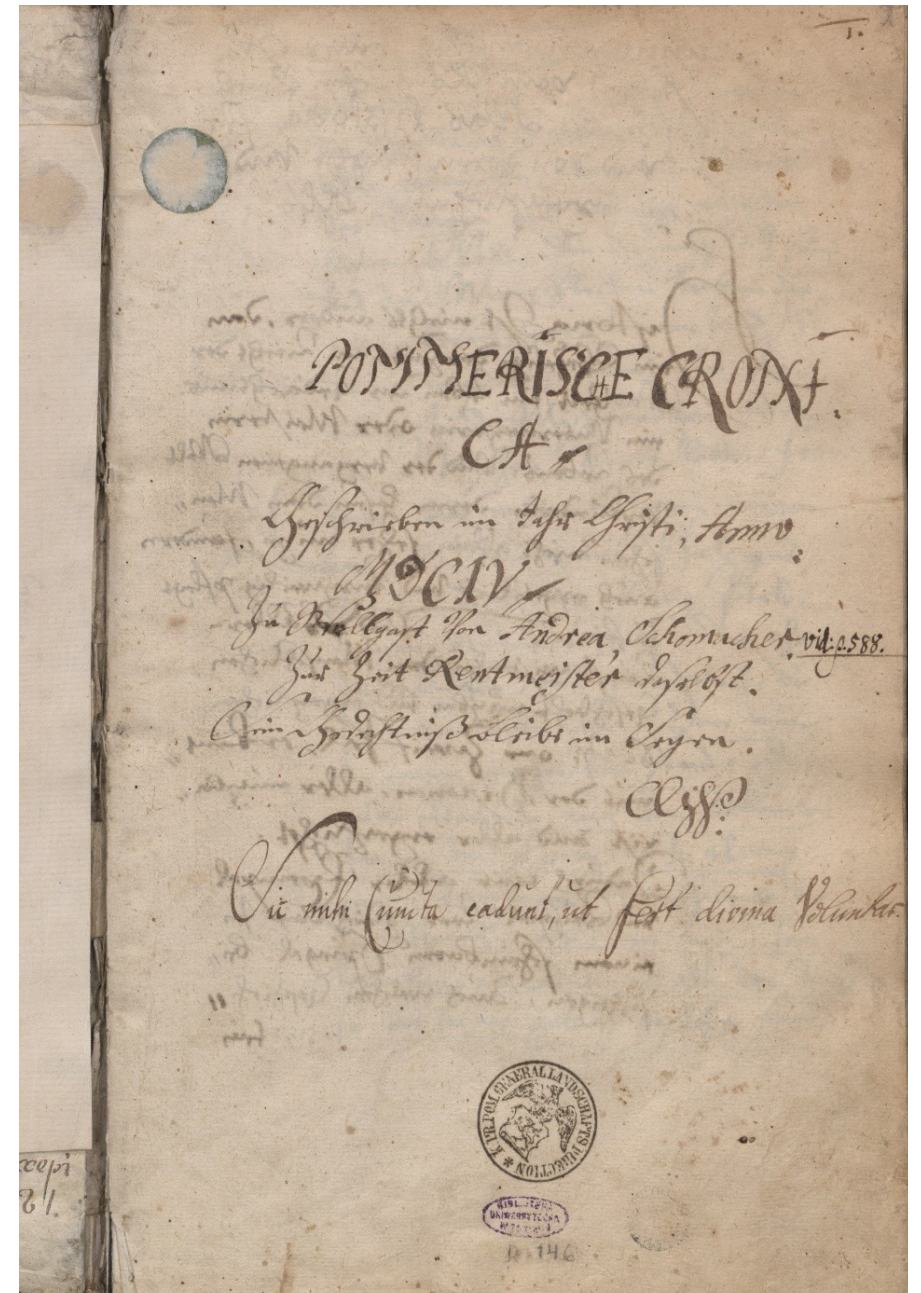 1.
POMMERISCHE CRONI.
CA
Geschrieben im Jahr Christi, Anno
MDCIV
Zu Wollgast Von Andrea Schomacher. vid: p. 588.
Zur Zeit Rentmeister daselbst.
Sein Gedechtniß bleibe im Segen.
Sic mihi Cuncta cadunt, ut fert divina Voluntas.
K. PR. POM. GENERAL LANDSCHAFTS DIRECTION
BIBLIOTEKA
UNIWERSYTECKA
W TORUNIU
146